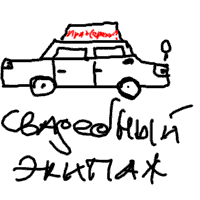 свадебный
экипаж